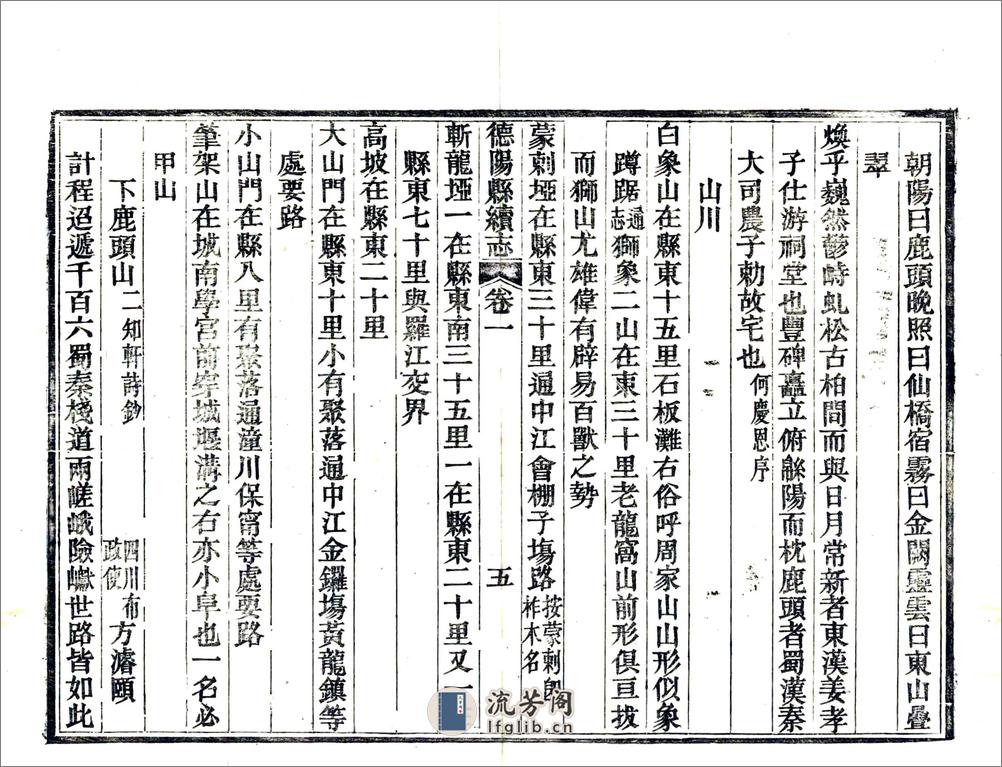 朝陽曰鹿頭晚照曰仙橋宿霧曰金闕靈雲曰東山疊
翠
煥乎巍然鬱峙虬松古柏間而與日月常新者東漢姜孝
子仕游祠堂也豐碑矗立俯緜陽而枕鹿頭者蜀漢秦
大司農子勅故宅也何慶恩序
山川
白象山在縣東十五里石板灘右俗呼周家山山形似象
蹲踞通志獅象二山在東三十里老龍窩山前形俱亘拔
而獅山尤雄偉有辟易百獸之勢
蒙刺埡在縣東三十里通中江會棚子塲路按蒙刺卽柞木名
德陽縣續志 卷一 五
斬龍埡一在縣東南三十五里一在縣東二十里又一
縣東七十里與羅江交界
高坡在縣東二十里
大山門在縣東十里小有聚落通中江金鑼塲黃龍鎮等
處要路
小山門在縣八里有聚落通潼川保甯等處要路
筆架山在城南學宮前穿城堰溝之右亦小阜也一名必
甲山
下鹿頭山二知軒詩鈔 四川布政使方濬頤
計程迢遞千百六蜀秦棧道兩嵯峨險巇世路皆如此
流芳阁
lfglib.cn